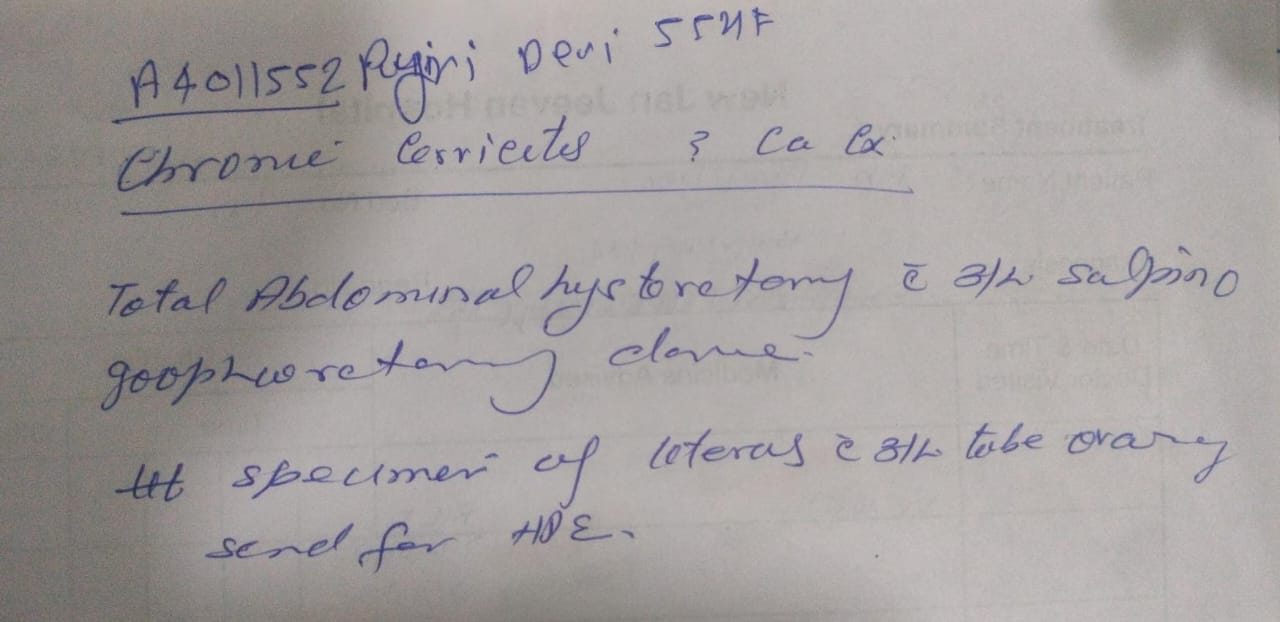 A4011552 Pyjiri Devi 55Y/F
Chronic Cervicites ? Ca Cx.
Total Abdominal hystoretomy c̄ B/L salpino
goophworetomy done.
specimen of Uterus c̄ B/L tube ovary
send for HPE.
New Jan Jeevan Hospital
Treatment Summary
Patient Name
Medicine Advised
Date & Time
Doctor Visited